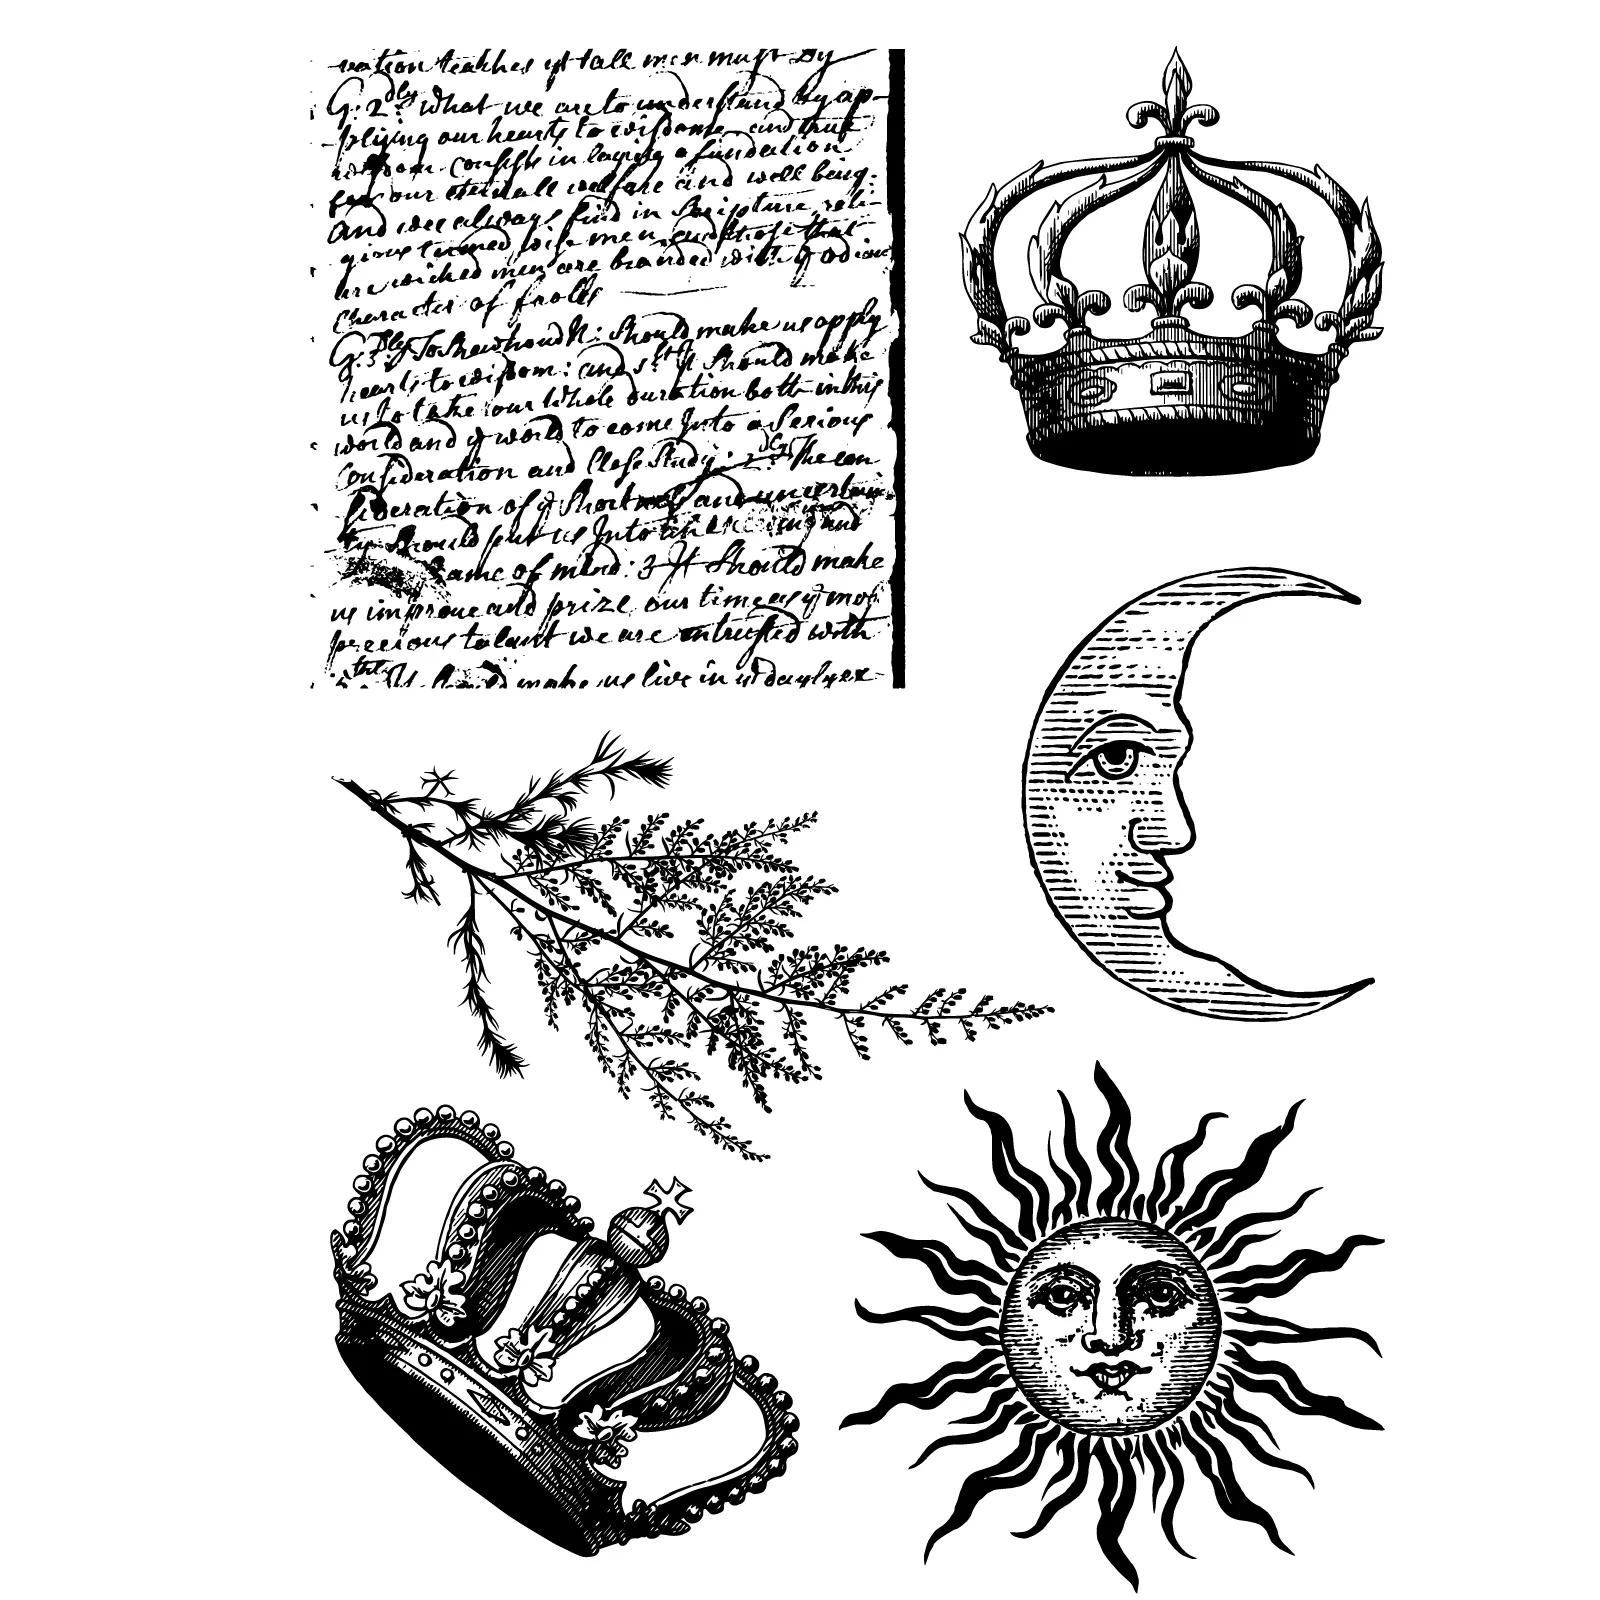 vation teaches yt all men must dy
Q: 2dly What we are to understand by ap-
plying our hearts to wisdome and true
wisdom consists in laying a fundation
for our eternall welfare and well being.
and wee always find in Scripture reli-
gious turned wise men and those that
are wicked men are branded with ye odious
character of fools
Q: 3dly To Shew how N: Should make us apply
hearts to wisdom: and 1st It Should make
us to take our Whole duration both in this
world and ye world to come Into a Serious
Consideration and Close Study: 2dly The con
sideration of ye Shortness and uncertain
ty Should put us Into and
frame of mind: 3 It Should make
us improve and prize our time as ye most
precious talent we are intrusted with
It Should make us live in daylyex-